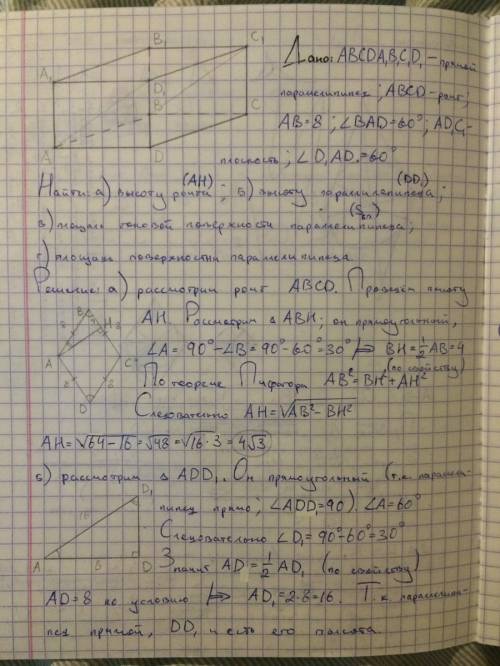 B₁
C₁
A₁
D₁
B
C
A
D
Дано: ABCDA₁B₁C₁D₁ – прямой
параллелипипед; ABCD – ромб;
AB=8; ∠BAD=60°; AD₁C₁ –
плоскость; ∠D₁AD₁=60°
Найти: а) высоту ромба (AH); б) высоту параллелипипеда (DD₁);
в) площадь боковой поверхности параллелипипеда; (Sбп)
г) площадь поверхности параллелипипеда
Решение: а) рассмотрим ромб ABCD. Проведём высоту
AH. Рассмотрим △ABH; он прямоугольный,
∠A = 90°-∠B = 90°-60°=30° ⊨> BH=½AB=4
(по свойству)
По теореме Пифагора AB²=BH²+AH²
Следовательно AH=√AB²-BH²
B
H
8
8
A
C
8
8
D
AH=√64-16=√48=√16·3=4√3
б) рассмотрим △ADD₁. Он прямоугольный (т.к. паралле-
пипед прямо; ∠ADD₁=90). ∠A=60°
Следовательно ∠D₁=90°-60°=30°
Значит AD=½AD₁ (по свойству)
D₁
16
A
8
D
AD=8 по условию ⊨> AD₁=2·8=16. Т.к. параллели-
пед прямой, DD₁ и есть его высота.